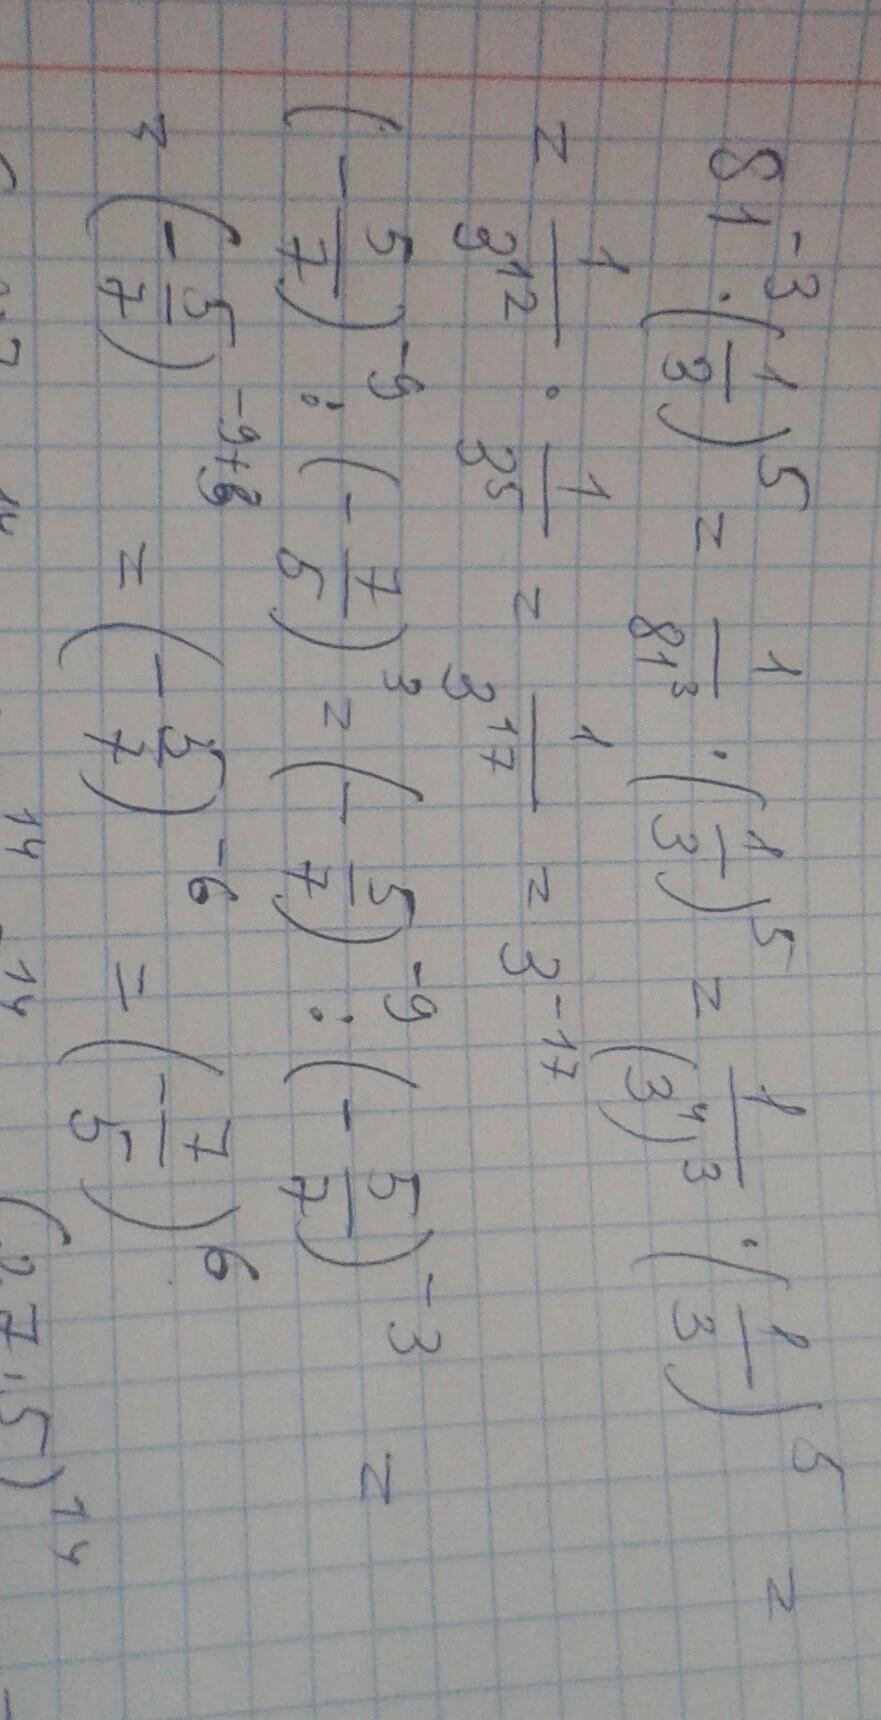 81^{-3} · (1/3)^5 = 1/81^3 · (1/3)^5 = 1/(3^4)^3 · (1/3)^5 =
= 1/3^{12} · 1/3^5 = 1/3^{17} = 3^{-17}
(-5/7)^{-9} : (-7/5)^3 = (-5/7)^{-9} : (-5/7)^{-3} =
= (-5/7)^{-9+3} = (-5/7)^{-6} = (-7/5)^6
14 14 14 (2,7 · 5)^{14}